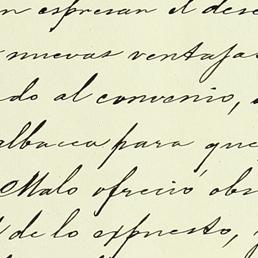 n espresan el dese
nuevas ventajas
do al convenio,
albacea para que
Malo ofreció obs
de lo expuesto,